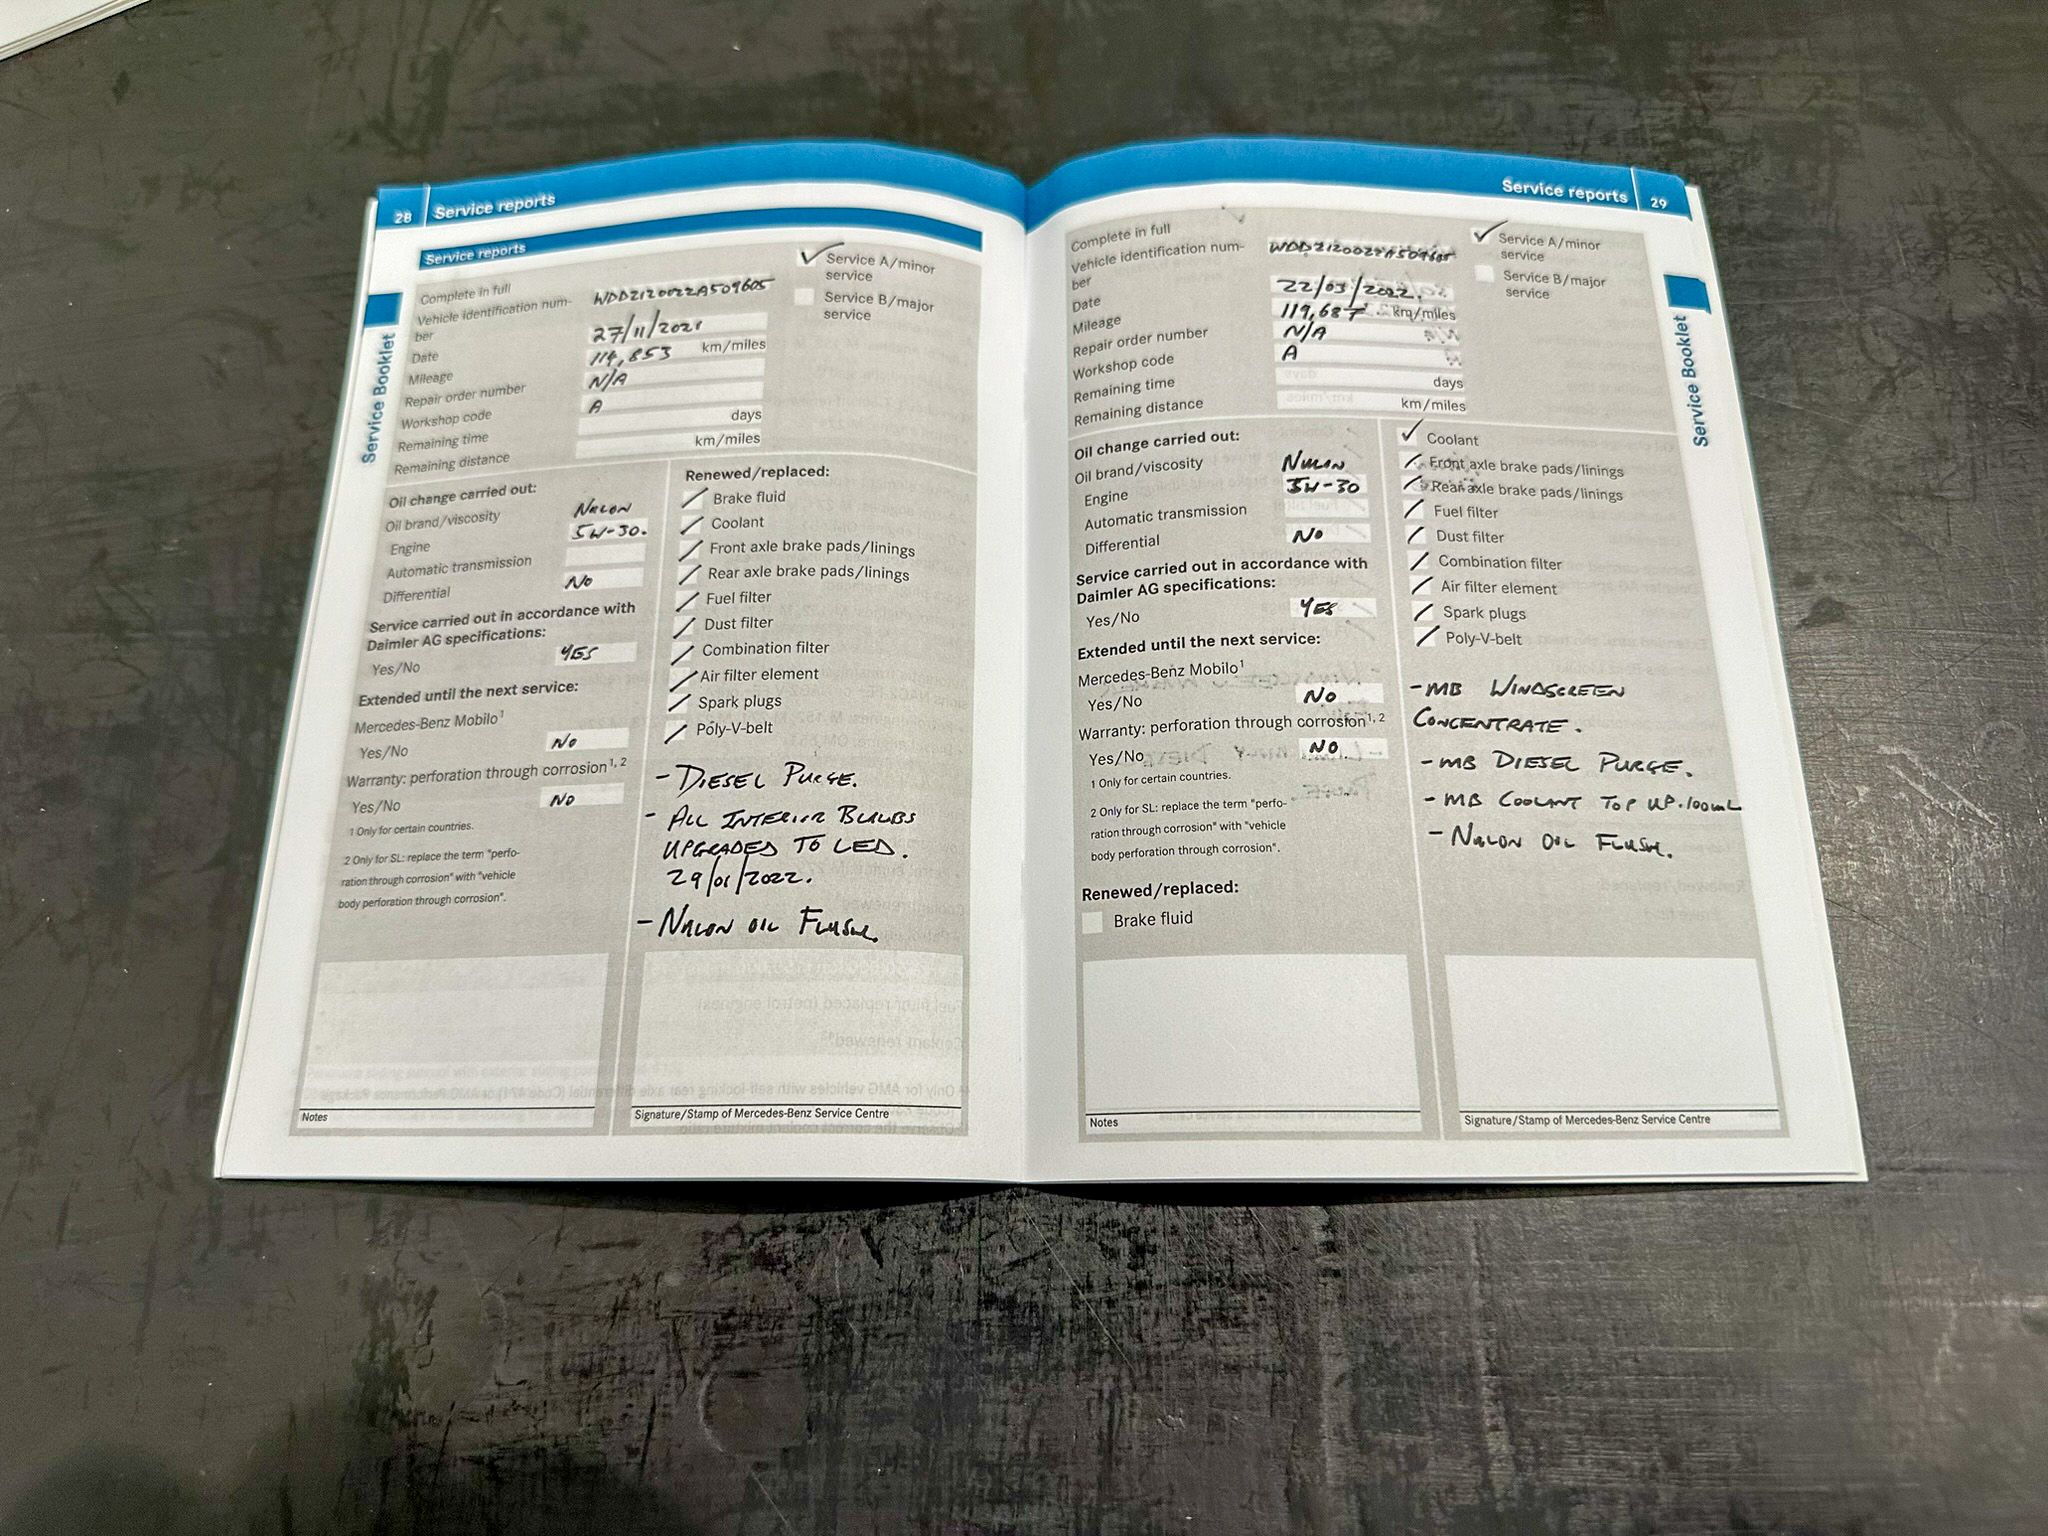 28 Service reports
Service reports
Complete in full
Vehicle identification num-
ber
WDD2120022A509605
Date 27/11/2021
Mileage 114,853 km/miles
Repair order number N/A
Workshop code A
Remaining time days
Remaining distance km/miles
✓ Service A/minor
service
Service B/major
service
Oil change carried out:
Oil brand/viscosity NULON
Engine 5W-30.
Automatic transmission
Differential NO
Service carried out in accordance with
Daimler AG specifications:
Yes/No YES
Extended until the next service:
Mercedes-Benz Mobilo1
Yes/No NO
Warranty: perforation through corrosion1, 2
Yes/No NO
1 Only for certain countries.
2 Only for SL: replace the term "perfo-
ration through corrosion" with "vehicle
body perforation through corrosion".
Renewed/replaced:
/ Brake fluid
/ Coolant
/ Front axle brake pads/linings
/ Rear axle brake pads/linings
/ Fuel filter
/ Dust filter
/ Combination filter
/ Air filter element
/ Spark plugs
/ Poly-V-belt
- DIESEL PURGE.
- ALL INTERIOR BULBS
UPGRADED TO LED.
29/01/2022.
- NULON OIL FLUSH.
Notes
Signature/Stamp of Mercedes-Benz Service Centre
Service Booklet
Service reports 29
Complete in full
Vehicle identification num-
ber
WDD2120022A509605
Date 22/03/2022.
Mileage 119,687 km/miles
Repair order number N/A
Workshop code A
Remaining time days
Remaining distance km/miles
✓ Service A/minor
service
Service B/major
service
Oil change carried out:
Oil brand/viscosity NULON
Engine 5W-30
Automatic transmission
Differential NO
Service carried out in accordance with
Daimler AG specifications:
Yes/No YES
Extended until the next service:
Mercedes-Benz Mobilo1
Yes/No NO
Warranty: perforation through corrosion1, 2
Yes/No NO
1 Only for certain countries.
2 Only for SL: replace the term "perfo-
ration through corrosion" with "vehicle
body perforation through corrosion".
Renewed/replaced:
Brake fluid
✓ Coolant
/ Front axle brake pads/linings
/ Rear axle brake pads/linings
/ Fuel filter
/ Dust filter
/ Combination filter
/ Air filter element
/ Spark plugs
/ Poly-V-belt
- MB WINDSCREEN
CONCENTRATE.
- MB DIESEL PURGE.
- MB COOLANT TOP UP.100mL
- NULON OIL FLUSH.
Notes
Signature/Stamp of Mercedes-Benz Service Centre
Service Booklet